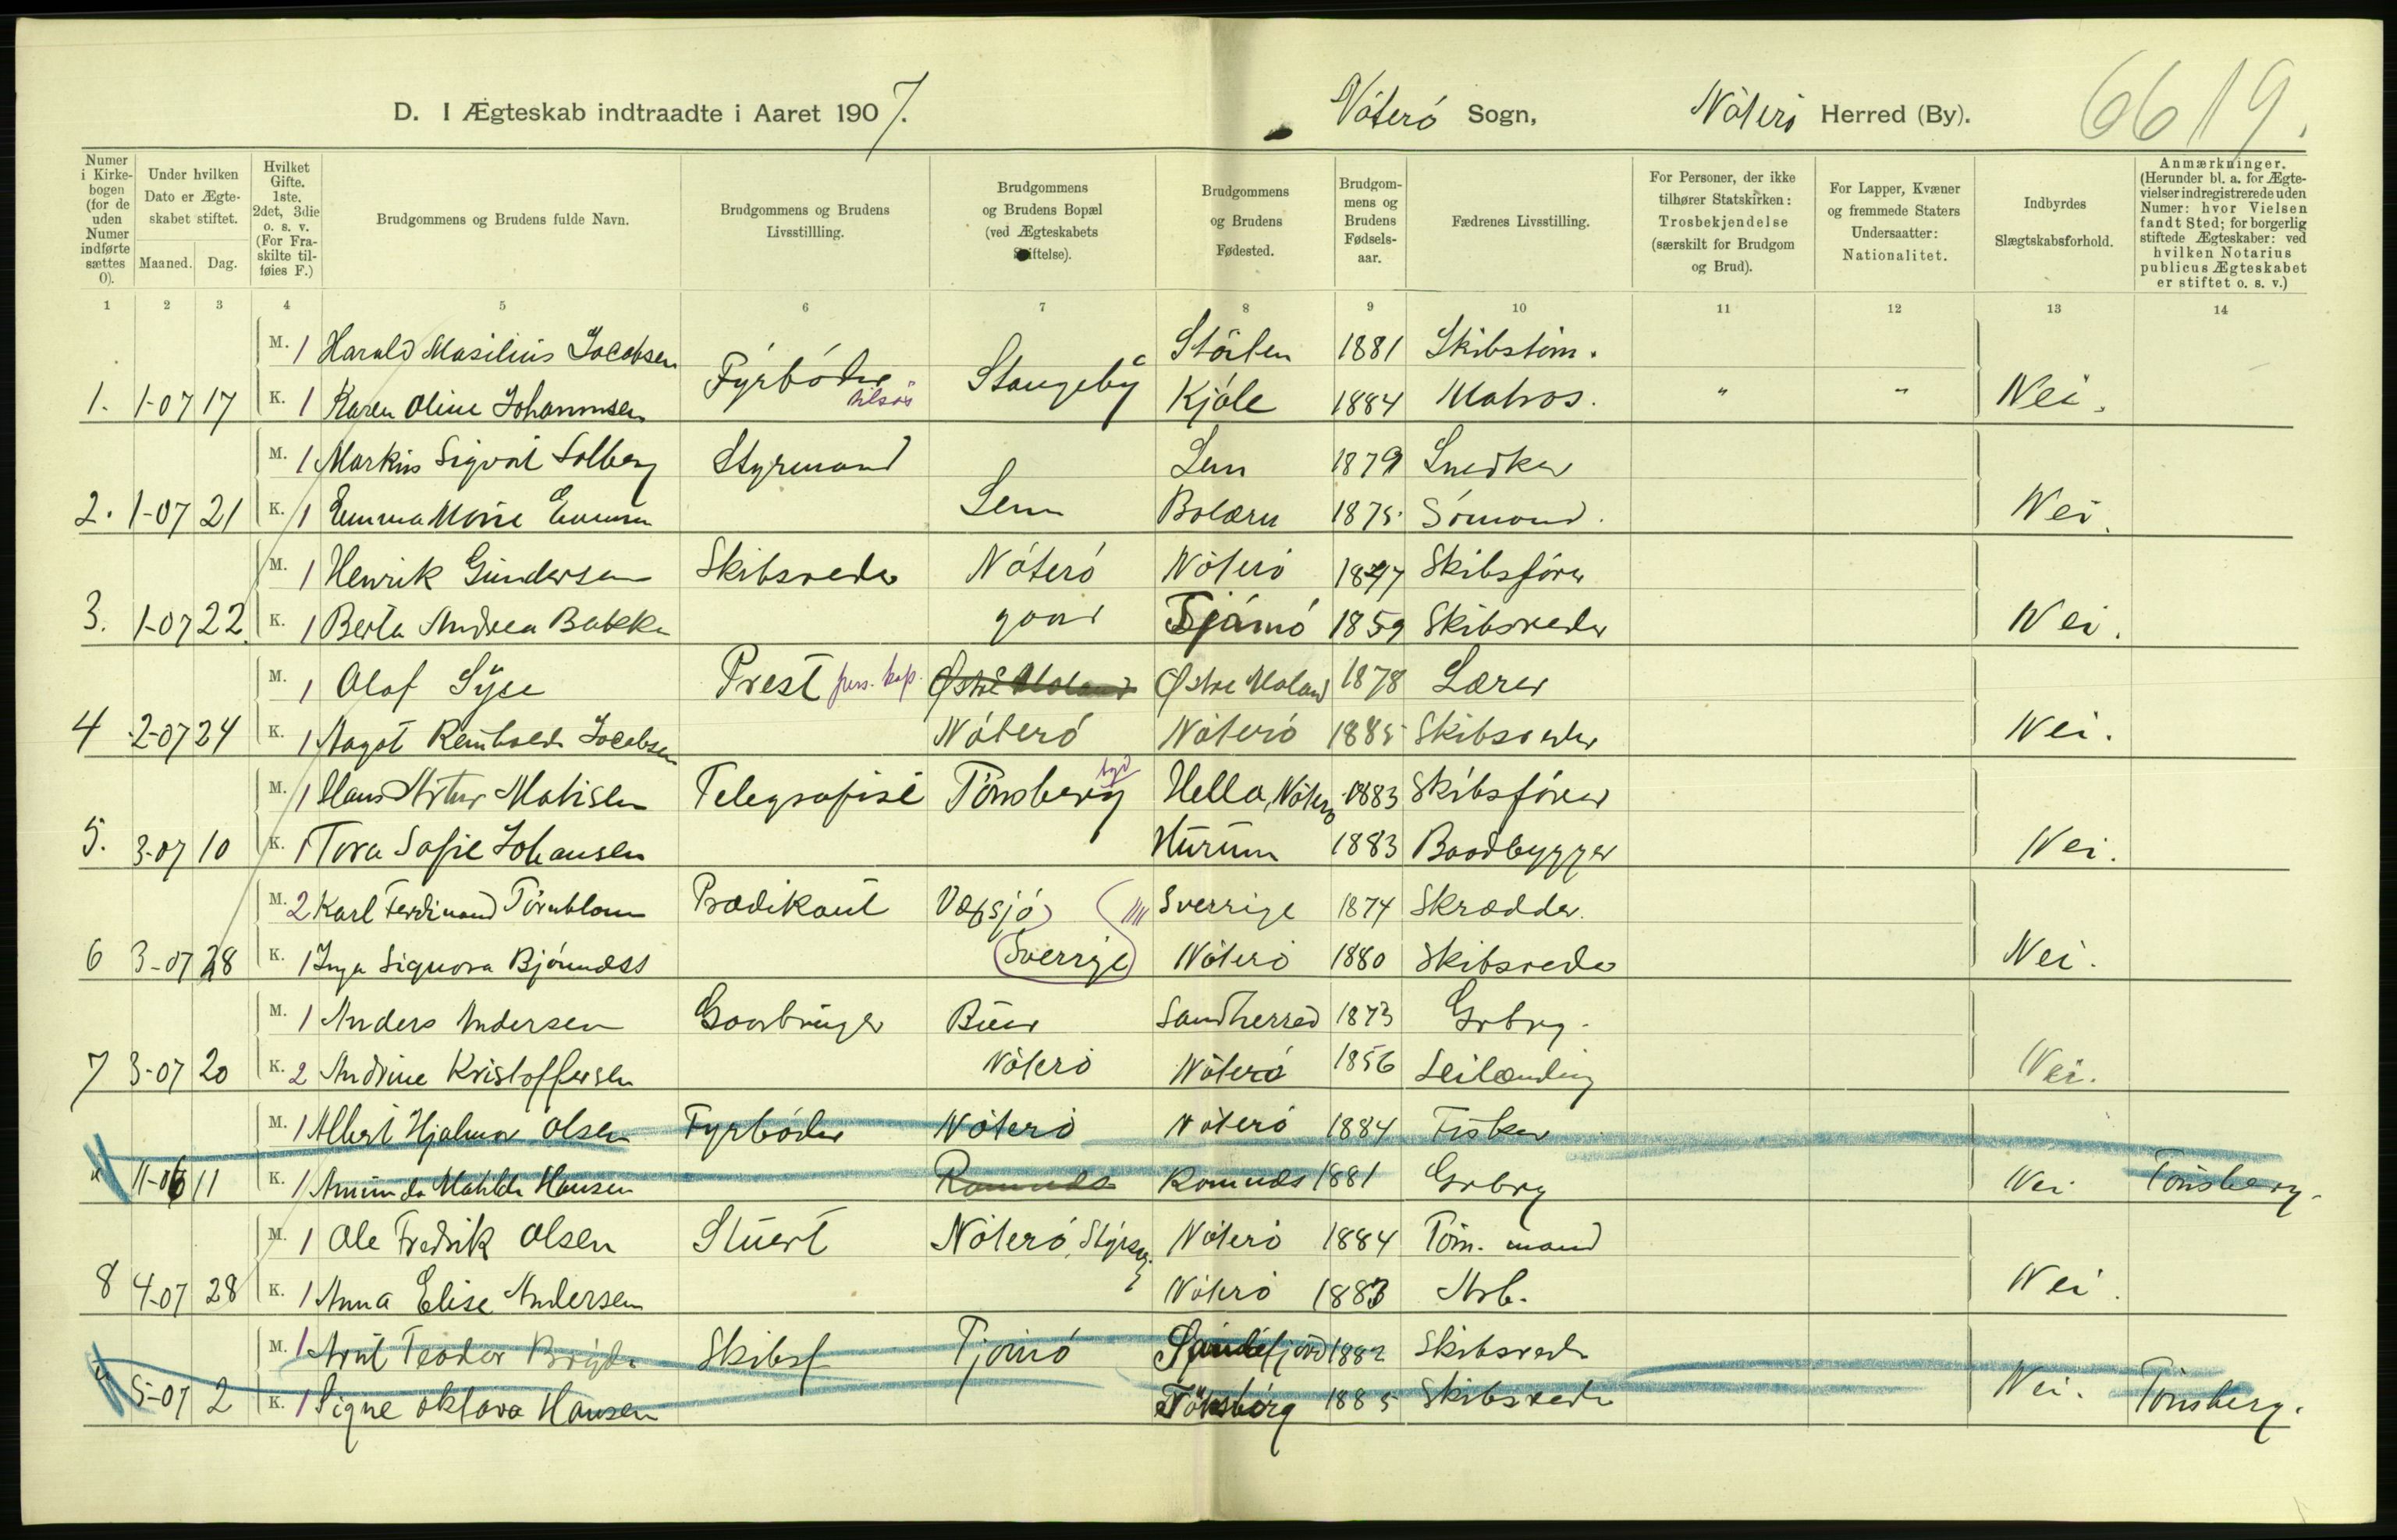 D. I Ægteskab indtraadte i Aaret 1907. Nøterø Sogn, Nøterø Herred (By). 6619.
Numer i Kirkebogen (for de uden Numer indførte sættes 0).
Under hvilken Dato er Ægteskabet stiftet.
Maaned. Dag.
Hvilket Gifte. 1ste. 2det, 3die o. s. v. (For Fraskilte tilføies F.)
Brudgommens og Brudens fulde Navn.
Brudgommens og Brudens Livsstillling.
Brudgommens og Brudens Bopæl (ved Ægteskabets Stiftelse).
Brudgommens og Brudens Fødested.
Brudgommens og Brudens Fødselsaar.
Fædrenes Livsstilling.
For Personer, der ikke tilhører Statskirken: Trosbekjendelse (særskilt for Brudgom og Brud).
For Lapper, Kvæner og fremmede Staters Undersaatter: Nationalitet.
Indbyrdes Slægtskabsforhold.
Anmærkninger. (Herunder bl. a. for Ægtevielser indregistrerede uden Numer: hvor Vielsen fandt Sted; for borgerlig stiftede Ægteskaber: ved hvilken Notarius publicus Ægteskabet er stiftet o. s. v.)
1 2 3 4 5 6 7 8 9 10 11 12 13 14
M. 1 Harald Masilius Jacobsen Fyrbøder tilsøs Stangeby Støiten 1881 Skibstøm.
1. 1-07 17 K. 1 Karen Oline Johannnsen Kjøle 1884 Matros. " " Nei.
M. 1 Markus Sigvart Solberg Styrmand Lem 1879 Snedker
2. 1-07 21 K. 1 Emma Marie Lem Bolærn 1875 Sømand. Nei.
M. 1 Henrik Gundersen Skibsreder Nøterø Nøterø 1847 Skibsfører
3. 1-07 22. K. 1 Berta Andrea Bakke gaar Tjømø 1859 Skibsreder Nei.
M. 1 Olaf Syse Prest pers. kap. Østre Moland Østre Moland 1878 Lærer
4 2-07 24 K. 1 Aagot Reinholda Jacobsen Nøterø Nøterø 1885 Skibsreder Nei.
M. 1 Hans Artur Matisen Telegrafist Tønsberg Hella, Nøterø 1883 Skibsfører
5. 3-07 10 K. 1 Tora Sofie Johansen Hurum 1883 Baadbygger Nei.
M. 2 Karl Ferdinand Törnblom Prædikant Vexsjø Sverrige 1874 Skrædder.
6 3-07 28 K. 1 Inga Signora Bjønness (Sverrige) Nøterø 1880 Skibsreder Nei.
M. 1 Anders Andersen Gaarbruger Buer Sandherred 1873 Grbrg.
7 3-07 20 K. 2 Andrine Kristoffersen Nøterø Nøterø 1856 Leilænding Nei.
M. 1 Albert Hjalmar Olsen Fyrbøder Nøterø Nøterø 1884 Fisker
" 11-06 11 K. 1 Aminda Matilde Hansen Ramnæs Ramnæs 1881 Grbrg Nei Tønsberg.
M. 1 Ole Fredrik Olsen Stuert Nøterø, Nøterø 1884 Tøm. mand
8 4-07 28 K. 1 Anna Elise Andersen Nøterø 1883 Arb. Nei.
M. 1 Arnt Teodor Bryde Skibsf Tjømø Sandefjord 1882 Skibsreder
" 5-07 2 K. 1 Signe Oktava Hansen Tønsberg 1885 Skibsreder Nei. Tønsberg.